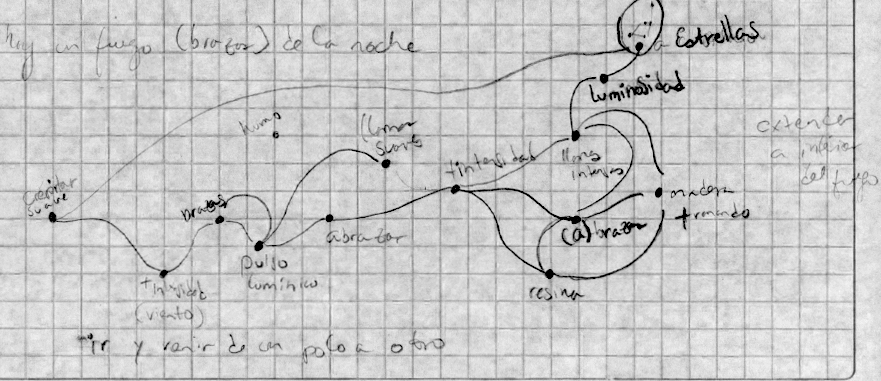 hay un fuego (brazas) de la noche
a Estrellas
luminosidad
humo
llamas
suave
+intensidad
llamas
intensas
extender
a interior
del fuego
crepitar
suave
brazas
madera
tronando
abrazar
(a)brazar
pulso
lumínico
+intensidad
(viento)
resina
ir y venir de un polo a otro